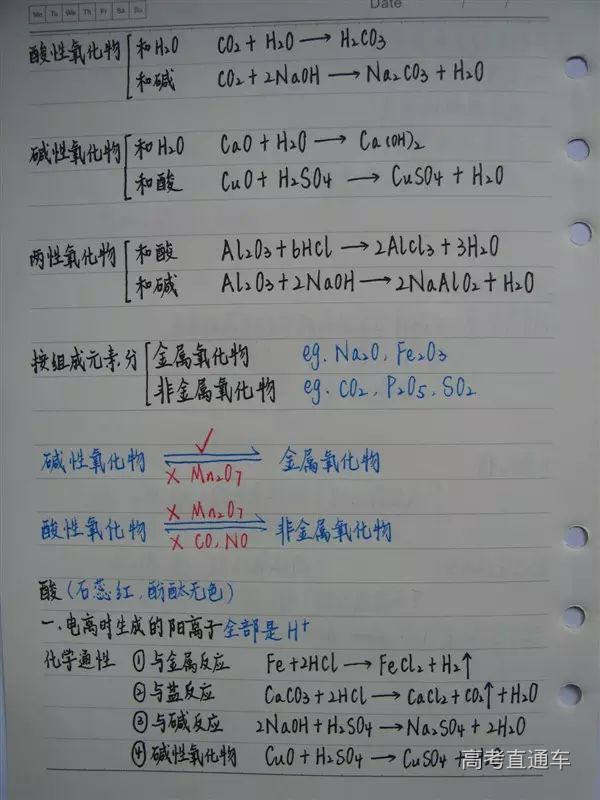 Mo Tu We Th Fr Sa Su Date / /
酸性氧化物 和H₂O CO₂ + H₂O → H₂CO₃
和碱 CO₂ + 2NaOH → Na₂CO₃ + H₂O
碱性氧化物 和H₂O CaO + H₂O → Ca(OH)₂
和酸 CuO + H₂SO₄ → CuSO₄ + H₂O
两性氧化物 和酸 Al₂O₃ + 6HCl → 2AlCl₃ + 3H₂O
和碱 Al₂O₃ + 2NaOH → 2NaAlO₂ + H₂O
按组成元素分 金属氧化物 eg. Na₂O, Fe₂O₃
非金属氧化物 eg. CO₂, P₂O₅, SO₂
✓
碱性氧化物 ⇌ 金属氧化物
× Mn₂O₇
× Mn₂O₇
酸性氧化物 ⇌ 非金属氧化物
× CO, NO
酸(石蕊红, 酚酞无色)
一.电离时生成的阳离子全部是H⁺
化学通性 ①与金属反应 Fe + 2HCl → FeCl₂ + H₂↑
②与盐反应 CaCO₃ + 2HCl → CaCl₂ + CO₂↑ + H₂O
③与碱反应 2NaOH + H₂SO₄ → Na₂SO₄ + 2H₂O
④碱性氧化物 CuO + H₂SO₄ → CuSO₄ +
高考直通车